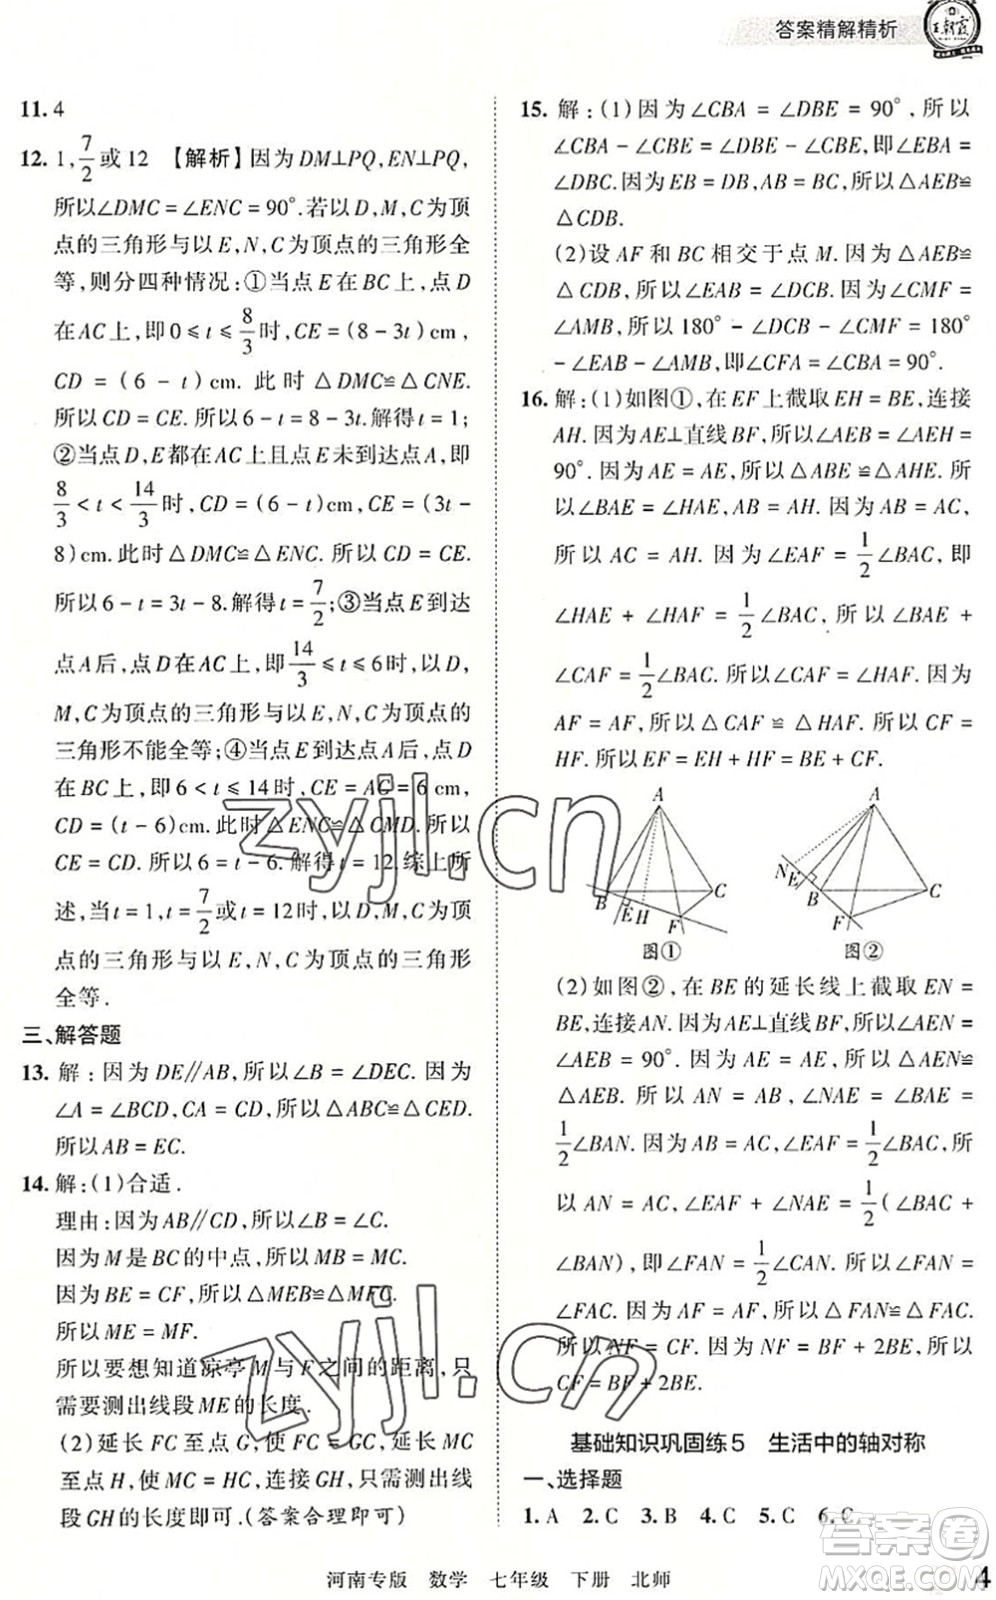 答案精解精析
王朝霞
11. 4
12. 1, 7/2 或 12 【解析】因为 DM⊥PQ, EN⊥PQ,
所以∠DMC = ∠ENC = 90°. 若以 D, M, C 为顶
点的三角形与以 E, N, C 为顶点的三角形全
等, 则分四种情况: ①当点 E 在 BC 上, 点 D
在 AC 上, 即 0 ≤ t ≤ 8/3 时, CE = (8 - 3t) cm,
CD = (6 - t) cm. 此时 △DMC≌△CNE.
所以 CD = CE. 所以 6 - t = 8 - 3t. 解得 t = 1;
②当点 D, E 都在 AC 上且点 E 未到达点 A, 即
8/3 < t < 14/3 时, CD = (6 - t) cm, CE = (3t -
8) cm. 此时 △DMC≌△ENC. 所以 CD = CE.
所以 6 - t = 3t - 8. 解得 t = 7/2; ③当点 E 到达
点 A 后, 点 D 在 AC 上, 即 14/3 ≤ t ≤ 6 时, 以 D,
M, C 为顶点的三角形与以 E, N, C 为顶点的
三角形不能全等; ④当点 E 到达点 A 后, 点 D
在 BC 上, 即 6 < t ≤ 14 时, CE = AC = 6 cm,
CD = (t - 6) cm. 此时 △ENC≌△CMD. 所以
CE = CD. 所以 6 = t - 6. 解得 t = 12. 综上所
述, 当 t = 1, t = 7/2 或 t = 12 时, 以 D, M, C 为顶
点的三角形与以 E, N, C 为顶点的三角形
全等.
三、解答题
13. 解: 因为 DE∥AB, 所以∠B = ∠DEC. 因为
∠A = ∠BCD, CA = CD, 所以 △ABC≌△CED.
所以 AB = EC.
14. 解: (1) 合适.
理由: 因为 AB∥CD, 所以∠B = ∠C.
因为 M 是 BC 的中点, 所以 MB = MC.
因为 BE = CF, 所以 △MEB≌△MFC.
所以 ME = MF.
所以要想知道凉亭 M 与 F 之间的距离, 只
需要测出线段 ME 的长度.
(2) 延长 FC 至点 G, 使 FC = GC, 延长 MC
至点 H, 使 MC = HC, 连接 GH, 只需测出线
段 GH 的长度即可. (答案合理即可)
15. 解: (1) 因为 ∠CBA = ∠DBE = 90°, 所以
∠CBA - ∠CBE = ∠DBE - ∠CBE, 即∠EBA =
∠DBC. 因为 EB = DB, AB = BC, 所以 △AEB≌
△CDB.
(2) 设 AF 和 BC 相交于点 M. 因为 △AEB≌
△CDB, 所以 ∠EAB = ∠DCB. 因为 ∠CMF =
∠AMB, 所以 180° - ∠DCB - ∠CMF = 180°
- ∠EAB - ∠AMB, 即∠CFA = ∠CBA = 90°.
16. 解: (1) 如图①, 在 EF 上截取 EH = BE, 连接
AH. 因为 AE⊥直线 BF, 所以∠AEB = ∠AEH =
90°. 因为 AE = AE, 所以 △ABE ≌ △AHE. 所
以∠BAE = ∠HAE, AB = AH. 因为 AB = AC,
所以 AC = AH. 因为 ∠EAF = 1/2∠BAC, 即
∠HAE + ∠HAF = 1/2∠BAC, 所以 ∠BAE +
∠CAF = 1/2∠BAC. 所以 ∠CAF = ∠HAF. 因为
AF = AF, 所以 △CAF ≌ △HAF. 所以 CF =
HF. 所以 EF = EH + HF = BE + CF.
A
B
C
E H
F
图①
A
N E
B
C
F
图②
(2) 如图②, 在 BE 的延长线上截取 EN =
BE, 连接 AN. 因为 AE⊥直线 BF, 所以∠AEN =
∠AEB = 90°. 因为 AE = AE, 所以 △AEN≌
△AEB. 所以 AN = AB, ∠NAE = ∠BAE =
1/2∠BAN. 因为 AB = AC, ∠EAF = 1/2∠BAC, 所
以 AN = AC, ∠EAF + ∠NAE = 1/2(∠BAC +
∠BAN), 即∠FAN = 1/2∠CAN. 所以 ∠FAN =
∠FAC. 因为 AF = AF, 所以 △FAN≌△FAC.
所以 NF = CF. 因为 NF = BF + 2BE, 所以
CF = BF + 2BE.
基础知识巩固练 5 生活中的轴对称
一、选择题
1. A 2. C 3. B 4. C 5. C 6. C
河南专版 数学 七年级 下册 北师
4
zyjl.cn
zyjl.cn
答案卷